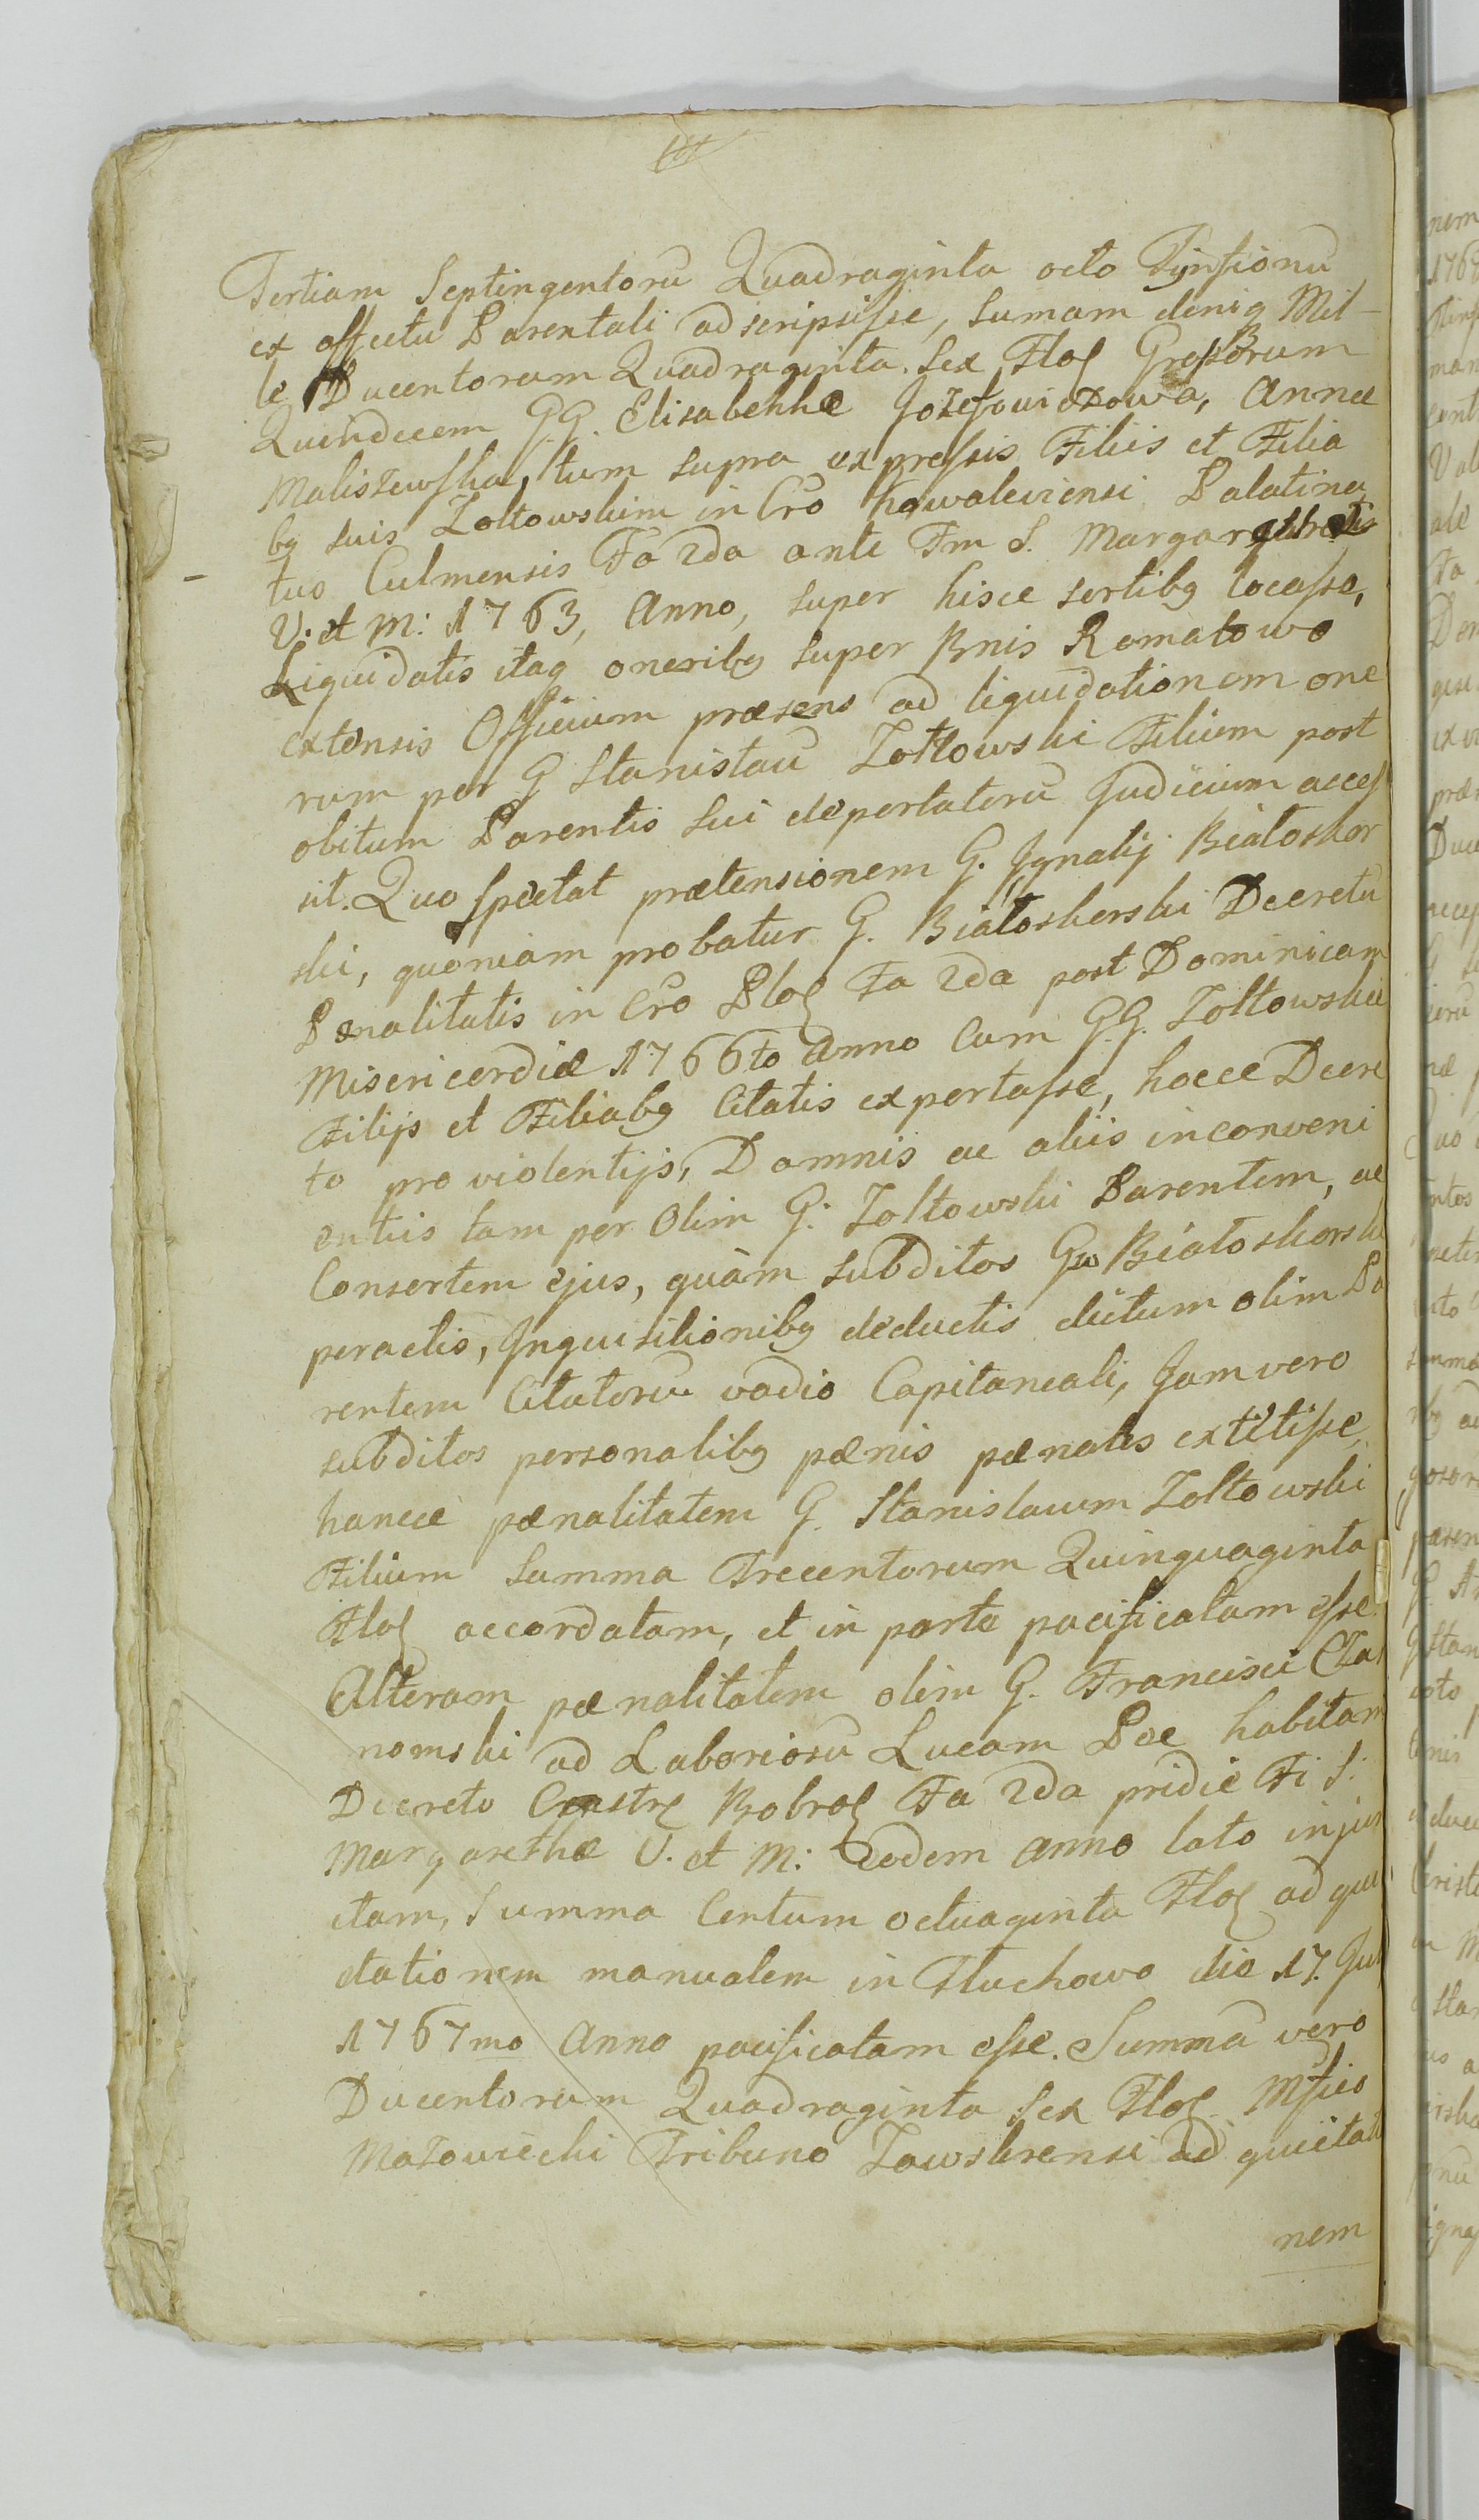 Tertiam Septingentorũ Quadraginta octo Tynfionũ
ex affectu Parentali adscripsisse, Sumam deniq Mil-
le Ducentorum Quadraginta Sex Flor Grossorum
Quindecem GG. Elisabethæ Jozefowiczowa, Annæ
Maliszewska, tum supra expressis Filiis et Filia
bq suis Zołtowskim in Cro Kowaleviensi Palatina
tus Culmensis Fa 2da ante Fm S. Margarethæ
V. et M: 1763, Anno, super hisce sortibq locasse,
Liquidatis itaq oneribq super Bnis Romatowo
extensis Officium præsens ad liquidationem one
rum per G Stanislaũ Zołtowski Filium post
obitum Parentis sui deportatorũ Judicium acces
sit. Quo spectat prætensionem G. Ignatij Białoskor
ski, quoniam probatur G. Białoskorski Decretũ
Pœnalitatis in Cro Ploc Fa 2da post Dominicam
Misericordiæ 1766to Anno Cum GG. Zołtowskie
Filijs et Filiabq Citatis exportasse, hocce Decre
to pro violentijs, Damnis ac aliis inconveni
entiis tam per Olim G: Zołtowski Parentem, ac
Consortem ejus, quàm subditos Gu Białoskorski
peractis, Inquisitionibq deductis dictum olim Pa
rentem Citatorũ vadio Capitaneali, Jam vero
subditos personalibq pœnis pœnatos extitisse,
hancce pœnalitatem G. Stanislaum Zołtowski
Filium Summa Trecentorum Quinquaginta
Flor accordatam, et in parte pacificatam esse.
Alteram pœnalitatem olim G. Francisci
nomski ad Laboriosũ Lucam habitam
Decreto Castr Bobror Fa 2da pridie Fi S.
Margarethæ V. et M: Eodem Anno lato injun
ctam, Summa Centum octuaginta Flor ad qui
etationem manualem in Tłuchowo die 17. Jul
1767mo Anno pacificatam esse. Summã vero
Ducentorum Quadraginta Sex Flor. Mfico
Mazowiecki Tribuno Zawskrensi ad quietati
nem